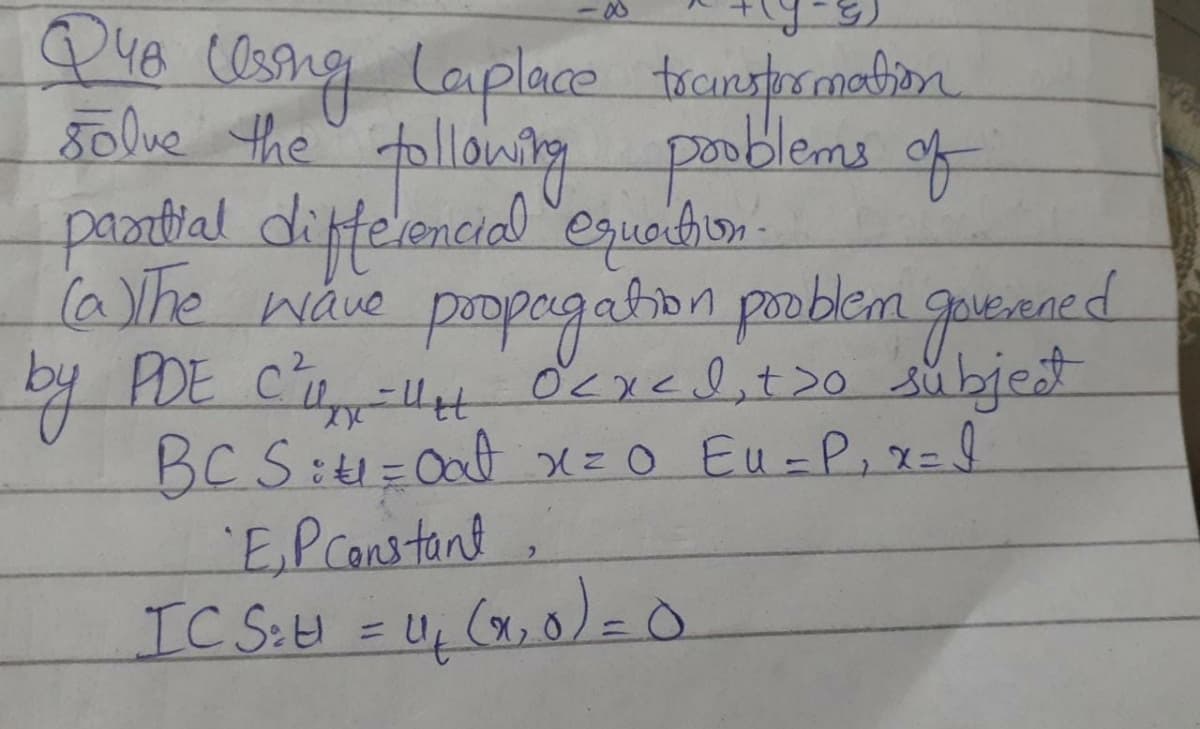 -∞ +(y-ξ)
Q4. Using Laplace transformation
solve the following problems of
partial differencial equation.
(a) The wave propagation problem goverened
by PDE C²uₓₓ = uₜₜ 0<x<l, t>0 subject
BCS: u = 0 at x=0 Eu = P, x=l
E, P Constant,
ICS: u = uₜ(x,0) = 0